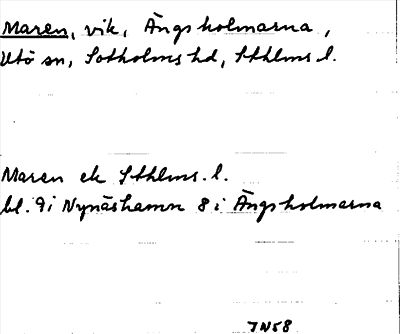 Maren, vik, Ängsholmarna,
Utö sn, Sotholms hd, Sthlms l.
Maren ek Sthlms. l.
bl. 9i Nynäshamn 8 i Ängsholmarna
JN58